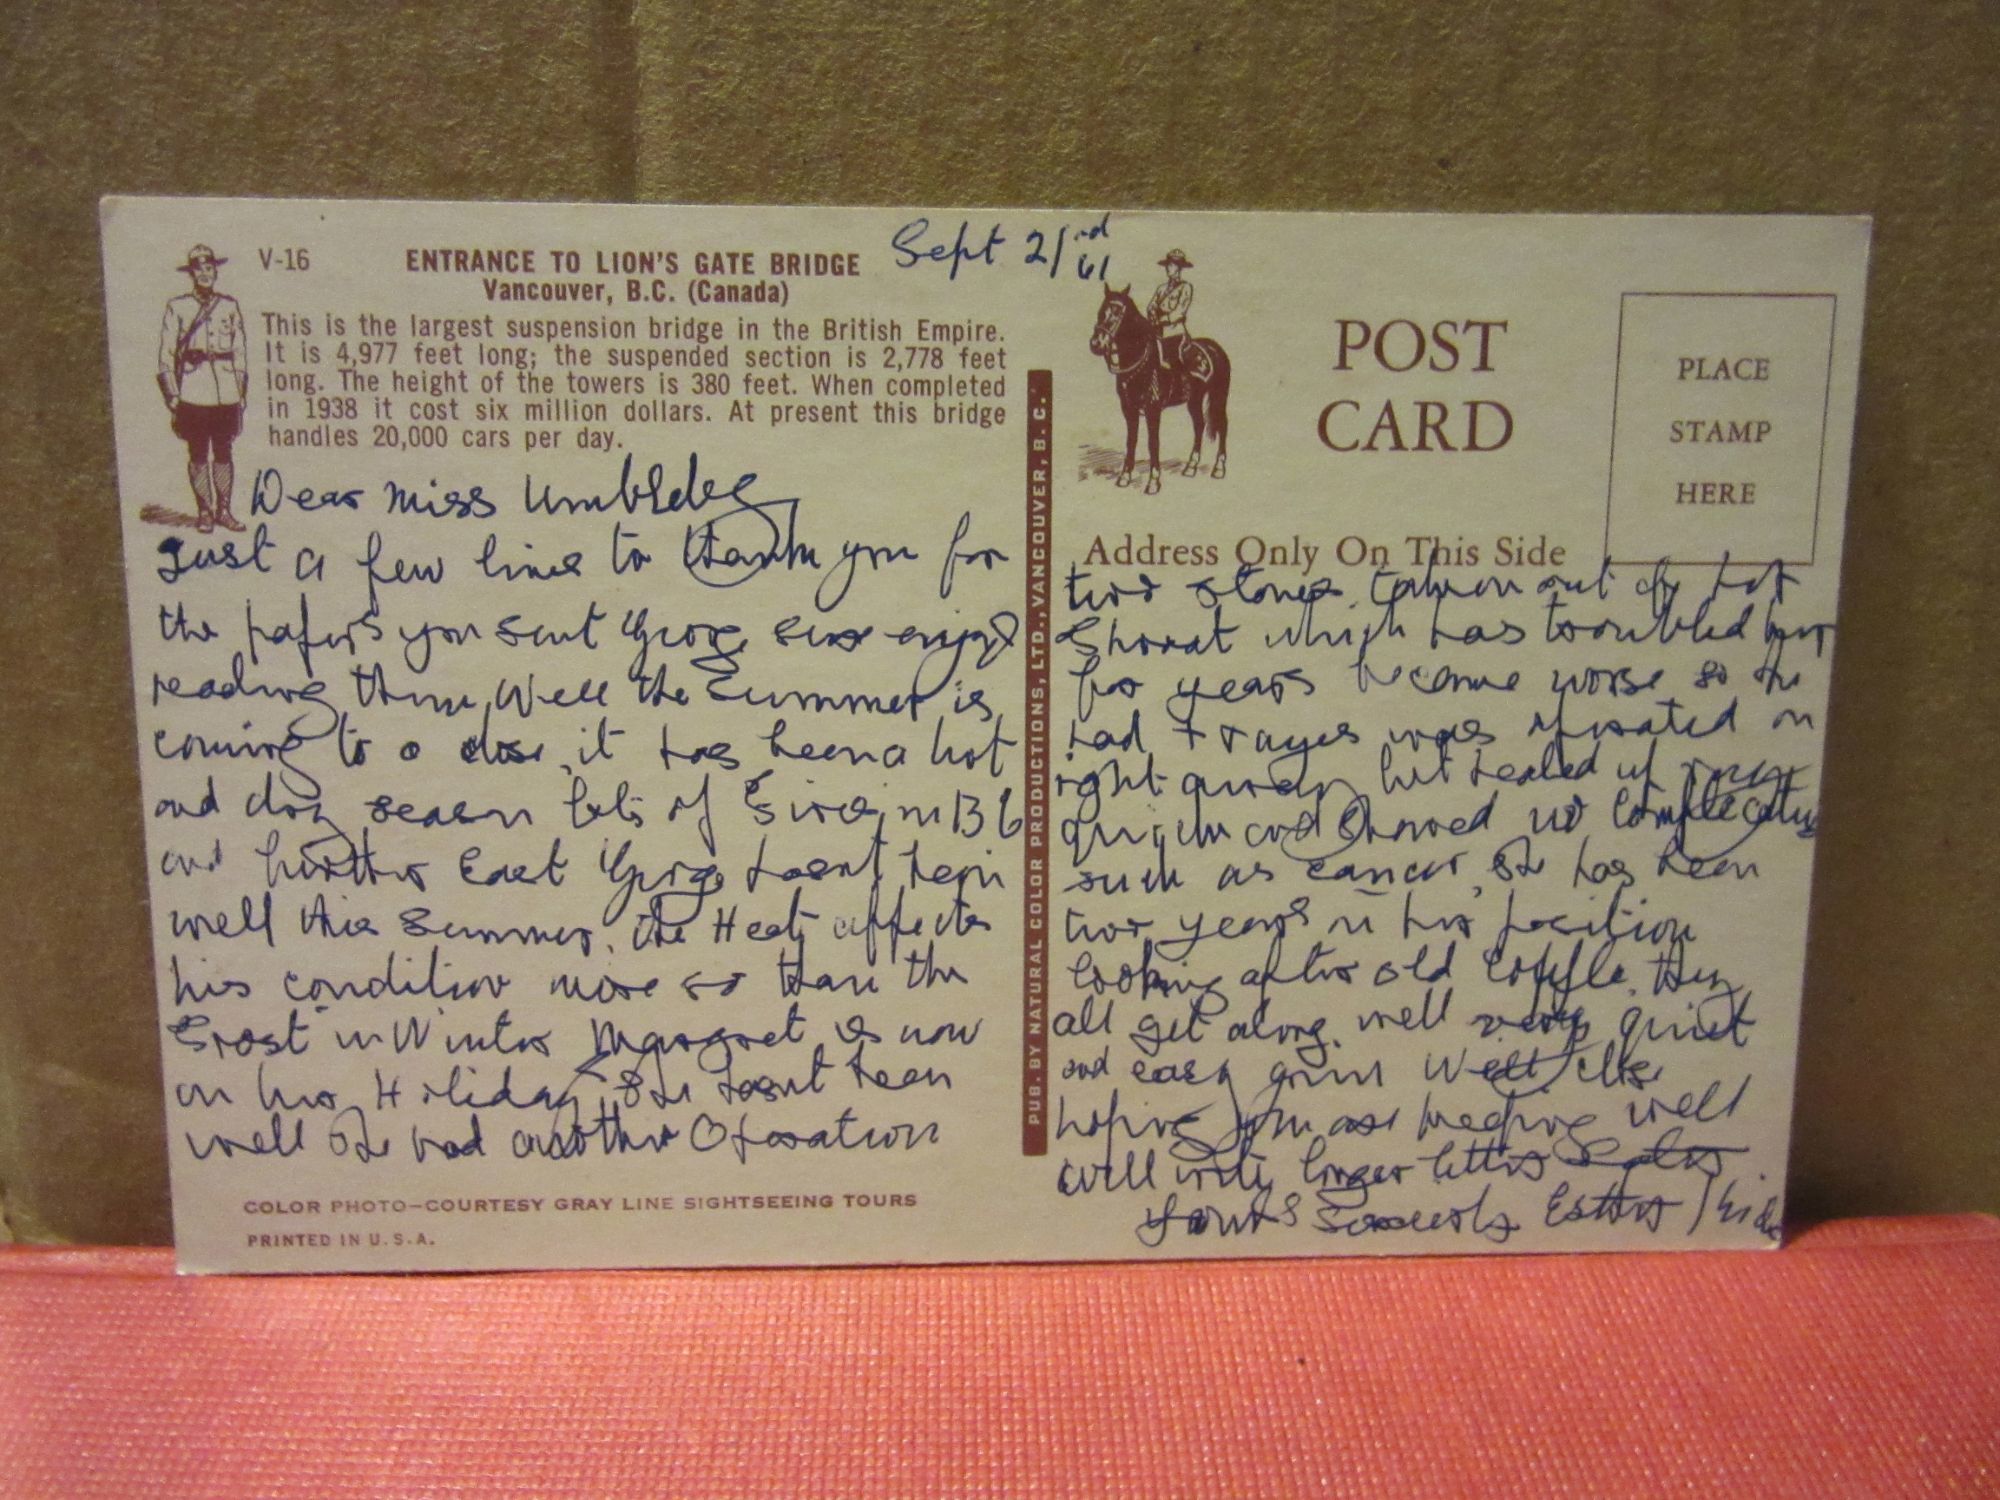 V-16
ENTRANCE TO LION'S GATE BRIDGE
Vancouver, B.C. (Canada)
This is the largest suspension bridge in the British Empire.
It is 4,977 feet long; the suspended section is 2,778 feet
long. The height of the towers is 380 feet. When completed
in 1938 it cost six million dollars. At present this bridge
handles 20,000 cars per day.
Sept 21rd
61
Dear Miss
Just a few lines to thank you for
the papers you sent George sure enjoys
reading them, Well the Summer is
coming to a close, it has been a hot
and dry season lots of Fires in B C
and further East George hasnt been
well this Summer, the Heat affects
his condition more so than the
Frost in Winter Margaret is now
on her Holiday, She hasnt been
well She had another Operation
COLOR PHOTO—COURTESY GRAY LINE SIGHTSEEING TOURS
PRINTED IN U.S.A.
PUB. BY NATURAL COLOR PRODUCTIONS, LTD., VANCOUVER, B. C.
POST
CARD
PLACE
STAMP
HERE
Address Only On This Side
two stones taken out of her
throat which has troubled her
for years became worse so she
had X rayes was operated on
right away, but healed up very
quick and showed no
such as cancer, She has been
two years in her position
looking after old couple, they
all get along well very quiet
and easy goin Well
hoping you are keeping well
will write longer letter later
Yours Sincerely Esther